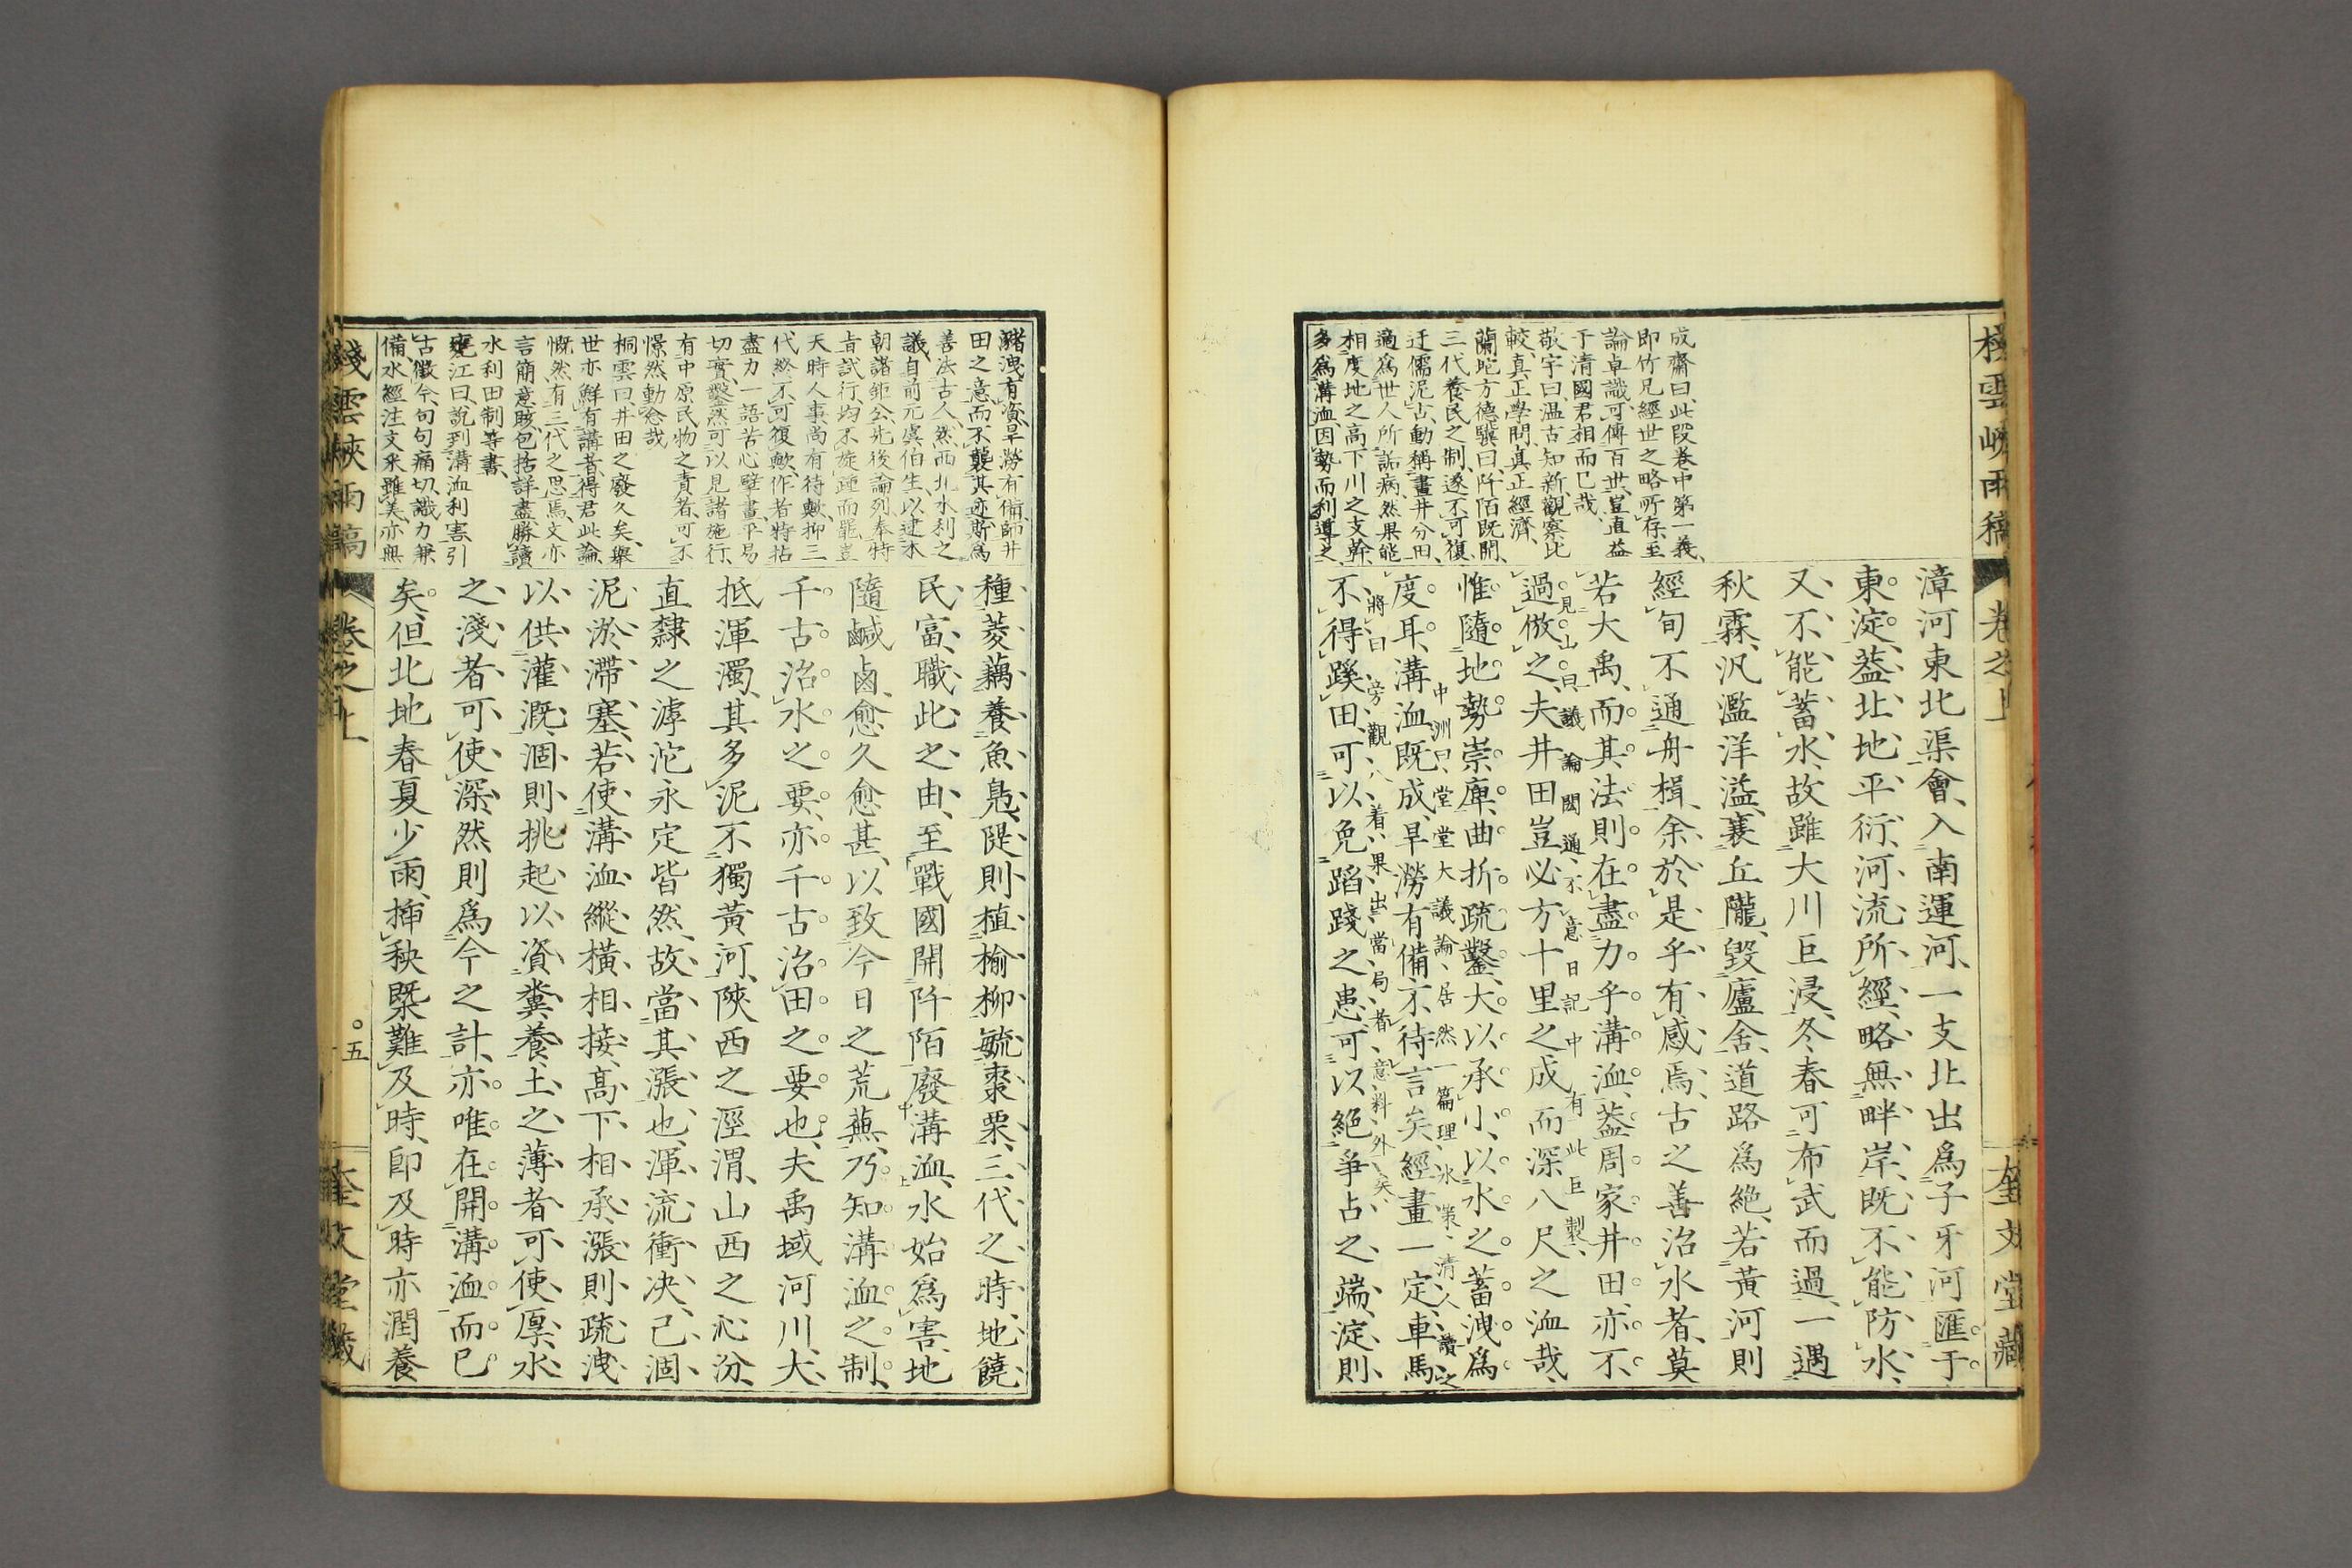 棧雲峽雨稿
卷之上
奎文堂藏
成齋曰、此段卷中第一義、
即竹兄經世之略所存、至
論卓識、可傳百世、豈直益
于清國君相而已哉、
敬宇曰、温古知新、觀察比
較、眞正學問、眞正經濟、
蘭坨方德驥曰、阡陌既開、
三代養民之制、遂不可復、
迂儒泥古、動稱畫井分田、
適爲世人所詬病、然果能
相度地之高下、川之支幹、
多爲溝洫、因勢而利導之、
漳河東北渠會、入南運河、一支北出爲子牙河匯于
東淀、葢北地平衍、河流所經、略無畔岸、既不能防水、
又不能蓄水、故雖大川巨浸、冬春可布武而過、一遇
秋霖、汎濫洋溢、襄丘隴、毀廬舍、道路爲絶、若黃河則
經旬不通舟楫、余於是乎有感焉、古之善治水者、莫
若大禹、而其法則在盡力乎溝洫、葢周家井田、亦不
見山曰、議論閎通、不意日記中有此巨製、
過倣之、夫井田豈必方十里之成、而深八尺之洫哉、
惟隨地勢崇庳、曲折疏鑿、大以承小、以水之蓄洩爲
中洲曰、堂堂大議論、居然一篇理水策、清人讀之
度耳、溝洫既成、旱澇有備、不待言矣、經畫一定、車馬
將曰、旁觀人着、果出當局者意料外矣、
不得蹊田、可以免蹈踐之患、可以絶爭占之端、淀則
瀦洩有資、旱澇有備、師井
田之意、而不襲其迹、斯爲
善法古人、然西北水利之
議、自前元虞伯生、以逮本
朝諸鉅公、先後論列、奉特
旨試行、均不旋踵而罷、豈
天時人事、尚有待歟、抑三
代終不可復歟、作者特拈
盡力一語、苦心擘畫、平易
切實、鑿然可以見諸施行、
有中原民物之責者、可不
憬然動念哉、
桐雲曰、井田之廢久矣、舉
世亦鮮有講者、得君此論、
慨然有三代之思焉、文亦
言簡意賅、包括詳盡、勝讀
水利田制等書、
甕江曰、説到溝洫利害、引
古徵今、句句痛切、識力兼
備、水經注文采雖美、亦無
種菱藕、養魚鳧、隄則植楡柳、毓棗栗、三代之時、地饒
民富、職此之由、至戰國開阡陌廢溝洫、水始爲害、地
隨鹹鹵、愈久愈甚、以致今日之荒蕪、乃知溝洫之制、
千古治水之要、亦千古治田之要也、夫禹域河川、大
抵渾濁、其多泥不獨黃河、陝西之涇渭、山西之沁汾、
直隸之滹沱永定皆然、故當其漲也、渾流衝决、已涸
泥淤滯塞、若使溝洫縱橫相接、高下相承、漲則疏洩
以供灌溉、涸則挑起以資糞養、土之薄者可使厚、水
之淺者可使深、然則爲今之計、亦唯在開溝洫而已
矣、但北地春夏少雨、揷秧槩難及時、即及時亦潤養
棧雲峽雨稿
卷之上
五
奎文堂藏